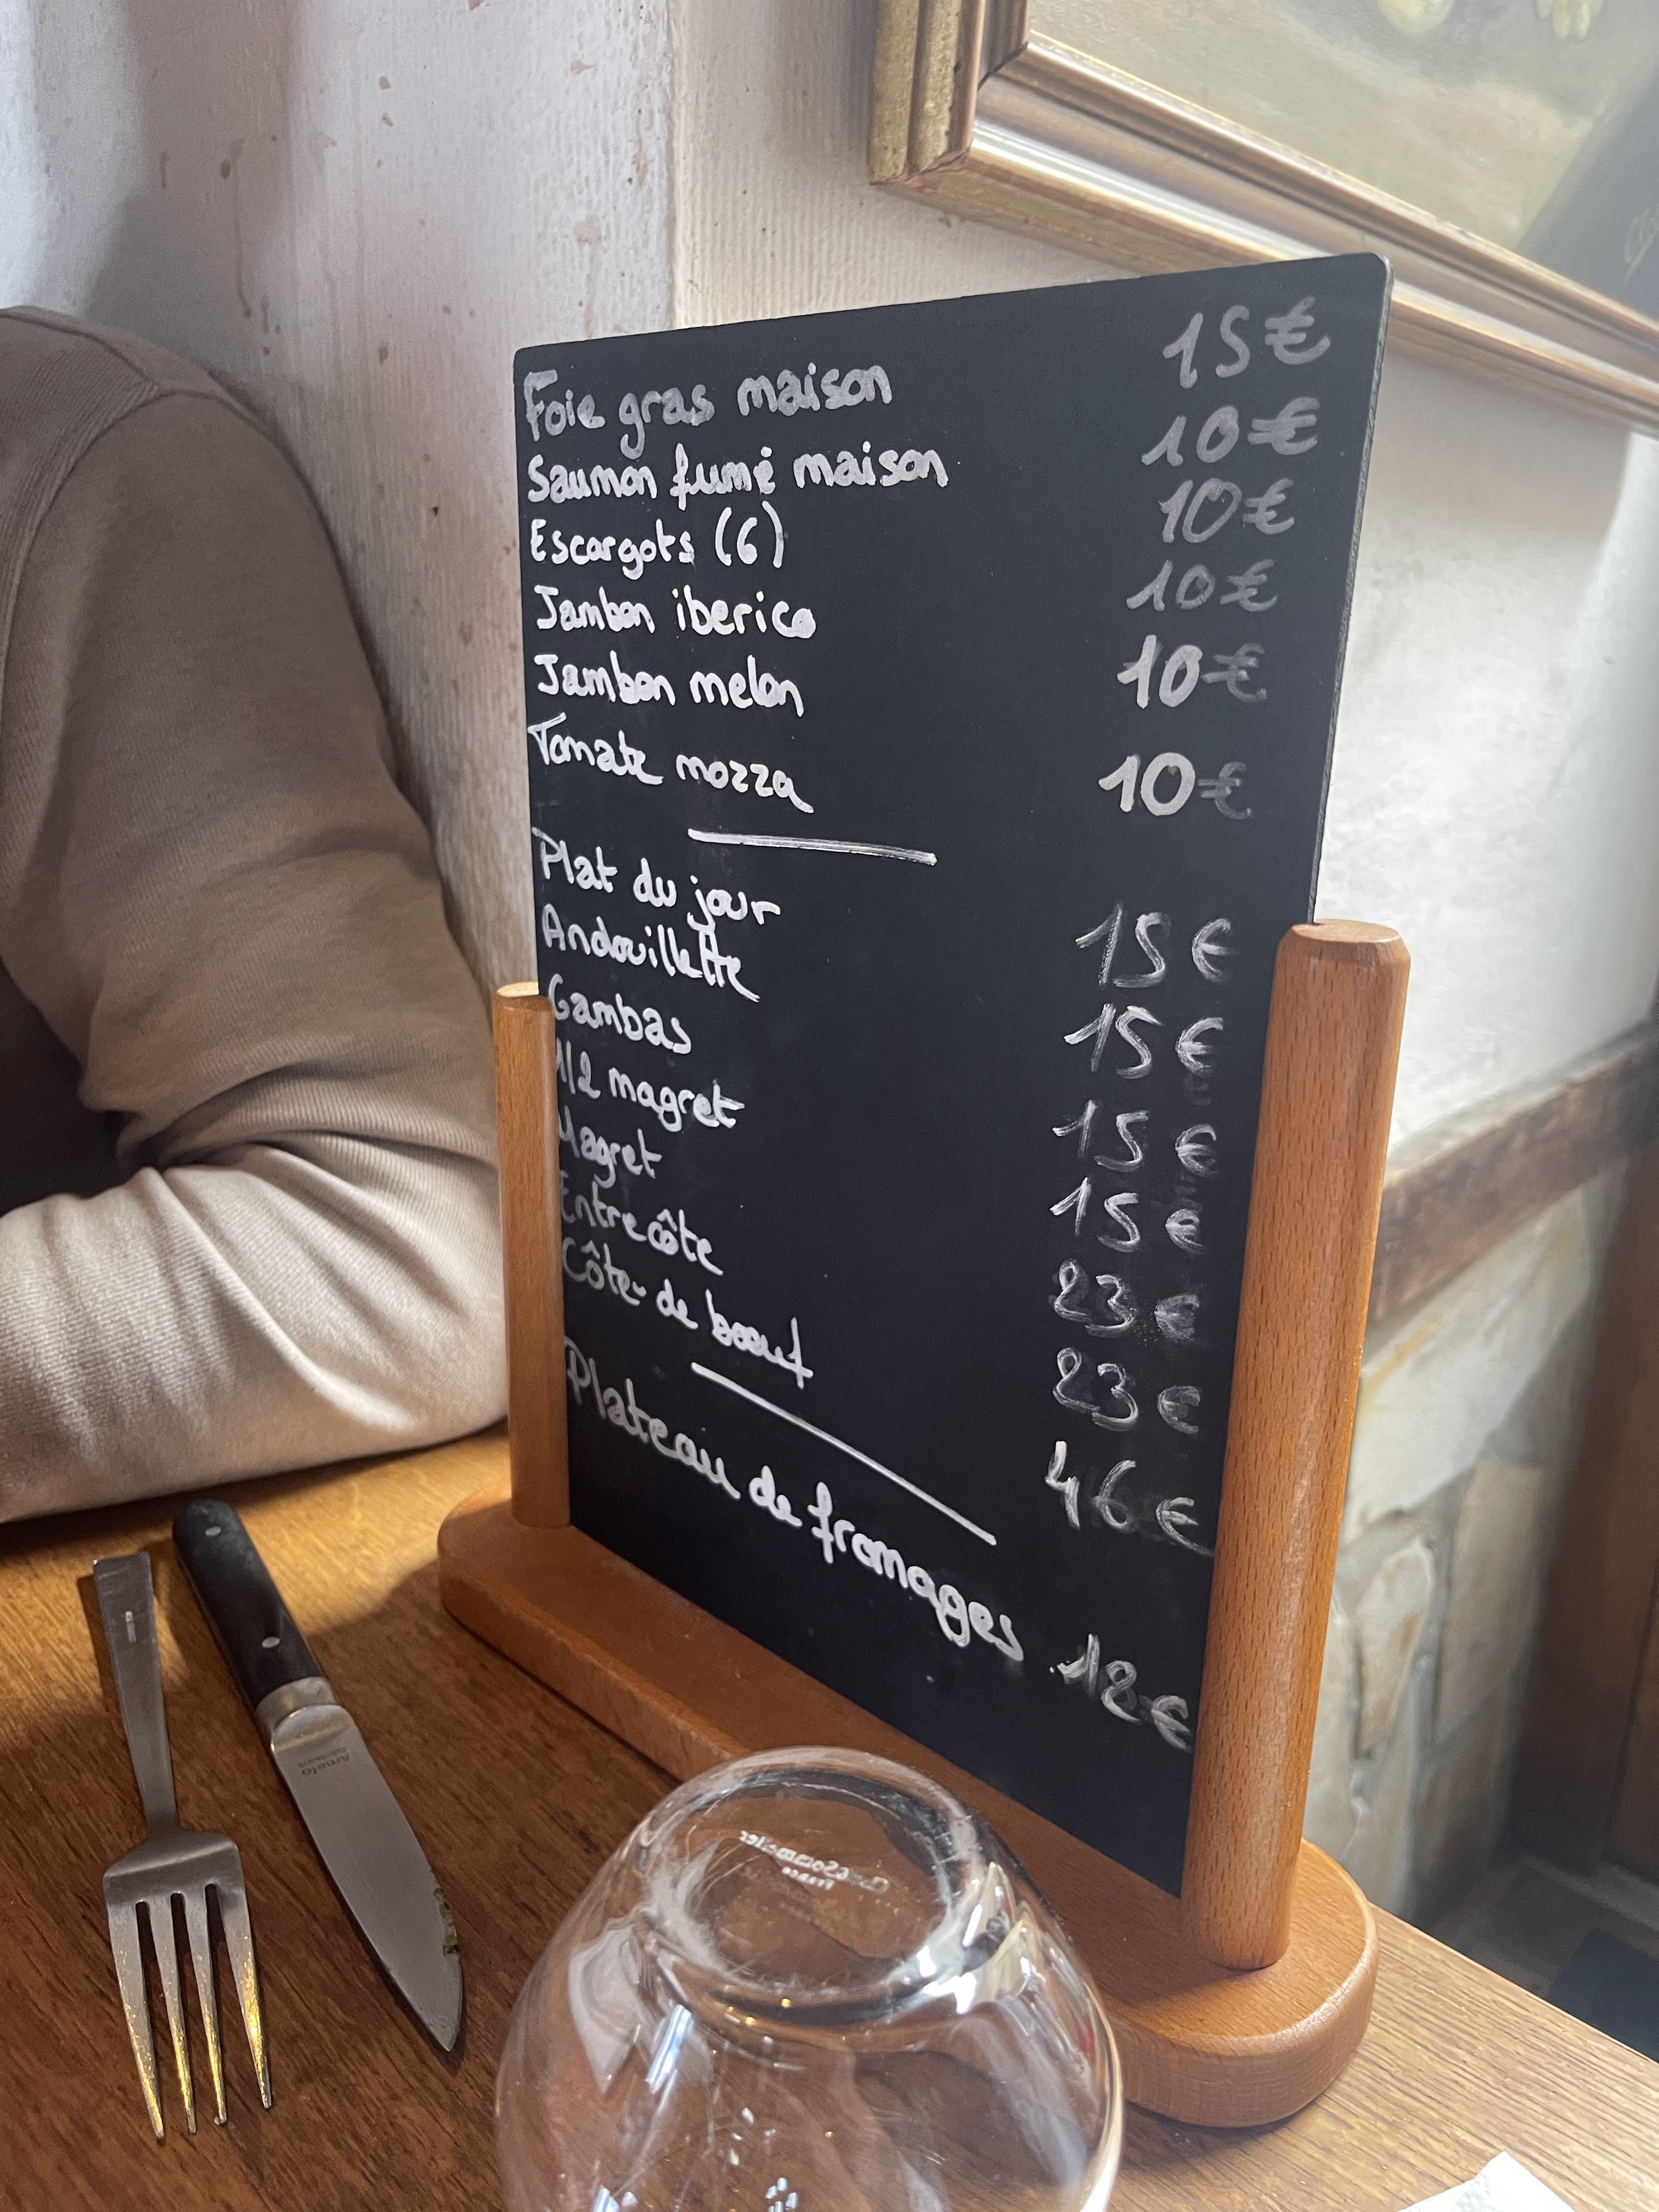 Foie gras maison 15€
Saumon fumé maison 10€
Escargots (6) 10€
Jambon iberico 10€
Jambon melon 10€
Tomate mozza 10€
Plat du jour 15€
Andouillette 15€
Gambas 15€
1/2 magret 15€
Magret 23€
Entrecôte 23€
Côte de boeuf 46€
Plateau de fromages 18€